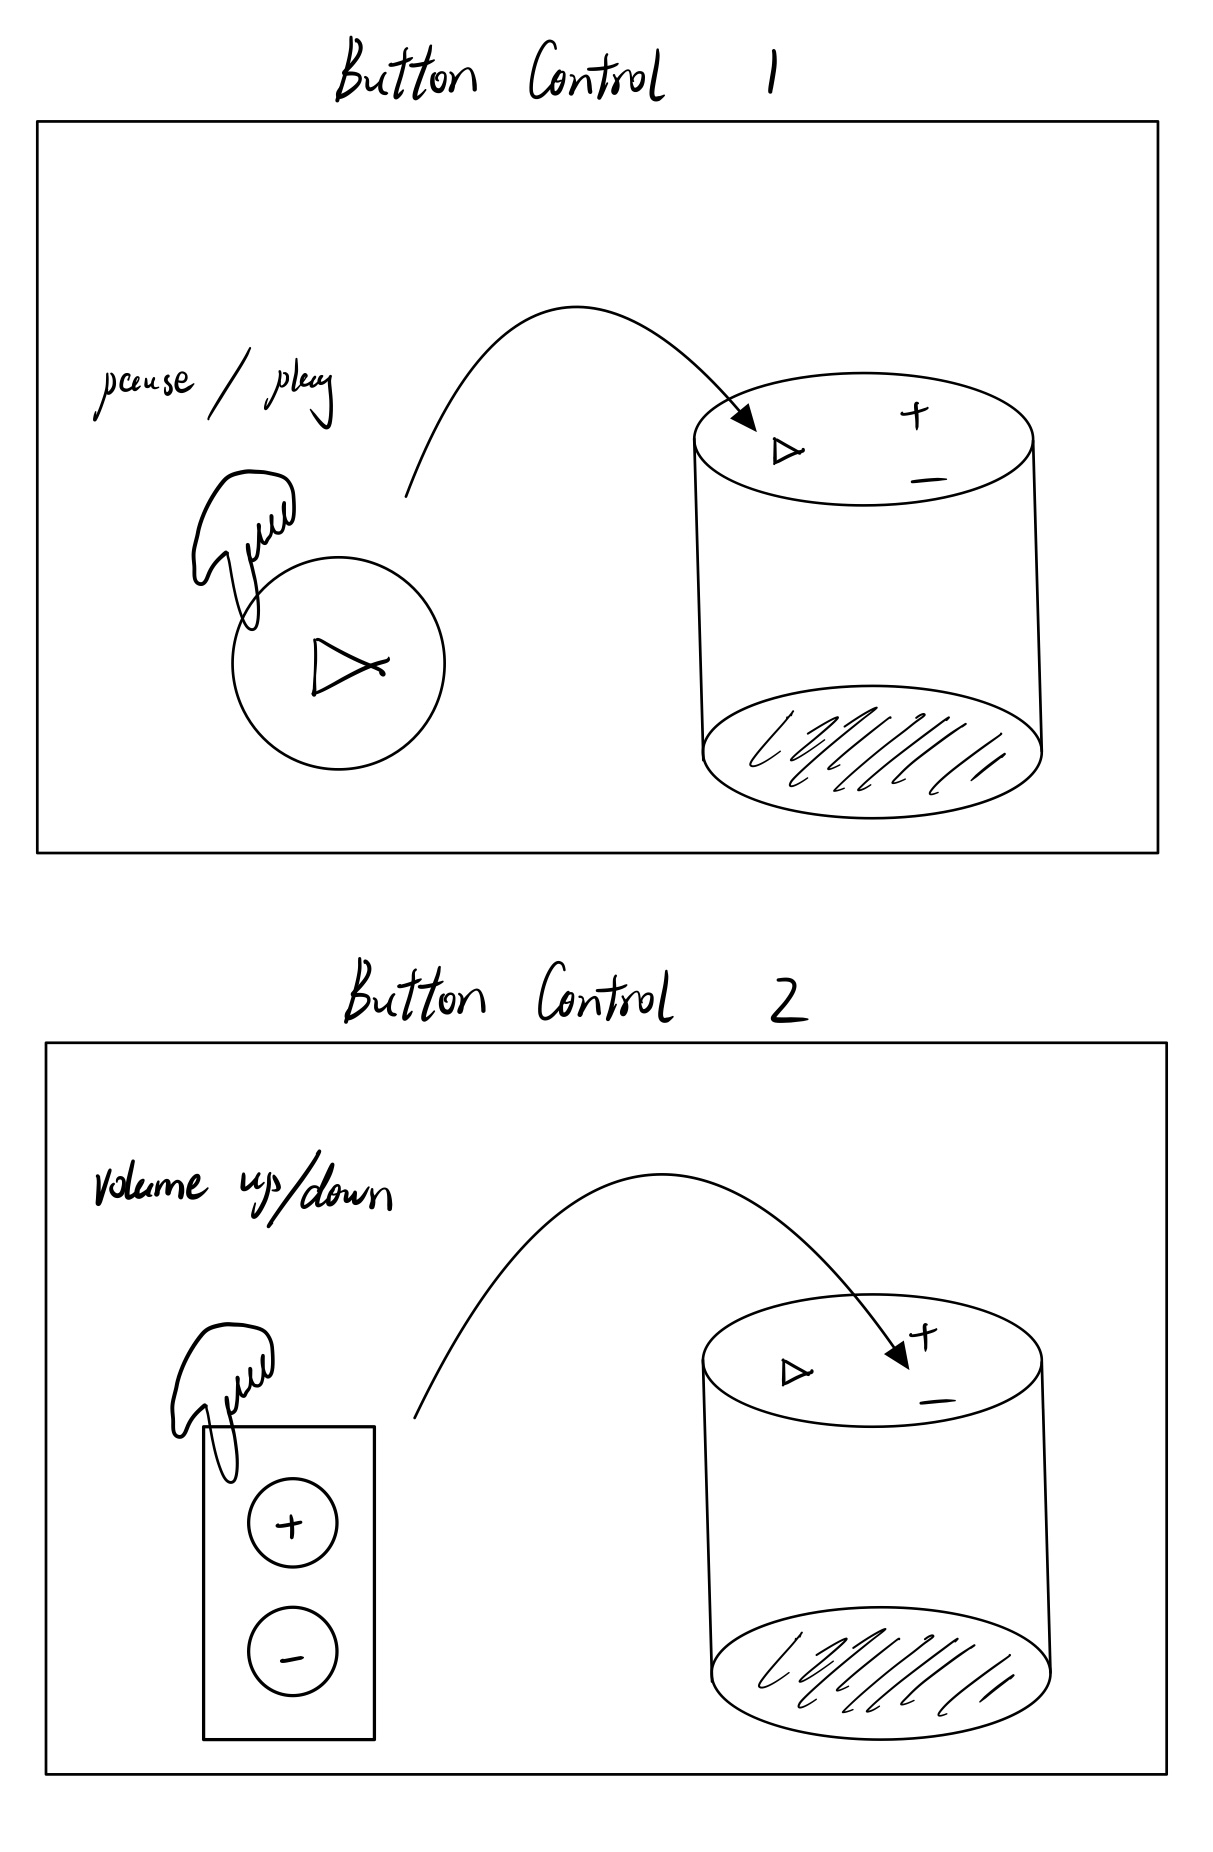 Button Control 1
pause / play
+
-
Button Control 2
volume up/down
+
-
+
-